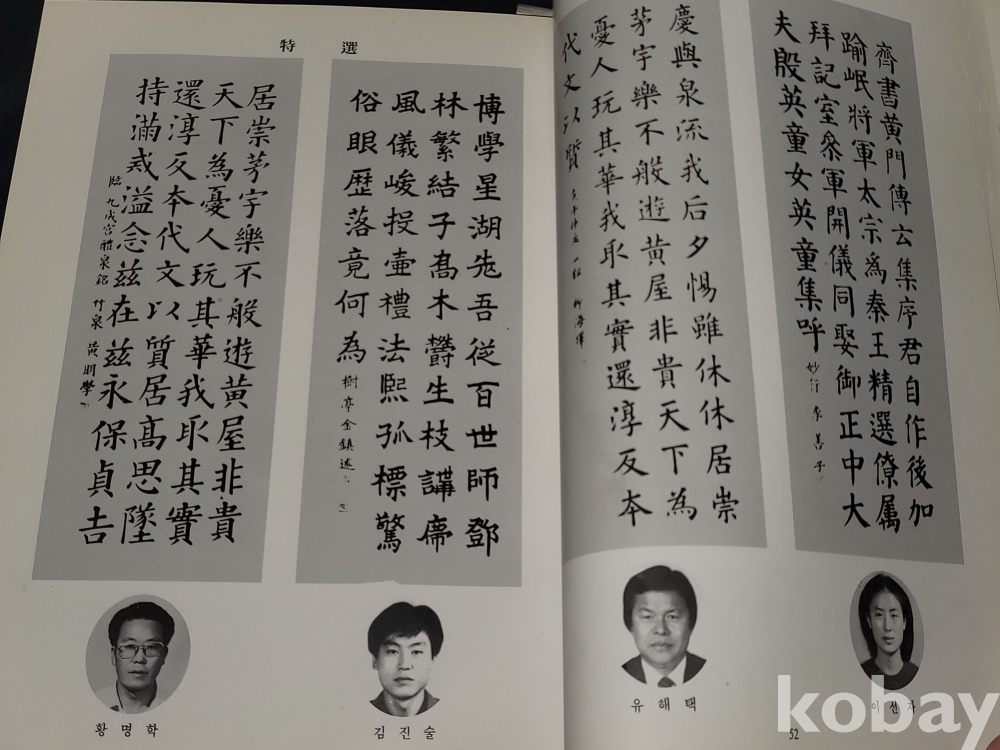 特 選
居崇茅宇樂不般遊黃屋非貴
天下為憂人玩其華我取其實
還淳反本代文以質居高思墜
持滿戒溢念茲在茲永保貞吉
臨九成宮醴泉銘 竹泉 黃明學
황명학
博學星湖先吾從百世師鄧
林繁結子高木欝生枝講席
風儀峻投壺禮法熙孤標驚
俗眼歷落竟何為
樹亭金鎮述
김진술
慶與泉流我后夕惕雖休休居崇
茅宇樂不般遊黃屋非貴天下為
憂人玩其華我取其實還淳反本
代文以質
柳海澤
유해택
齊書黃門傳云集序君自作後加
踰岷將軍太宗爲秦王精選僚属
拜記室參軍開儀同娶御正中大
夫殷英童女英童集呼
妙行 李善子
이선자
52
kobay